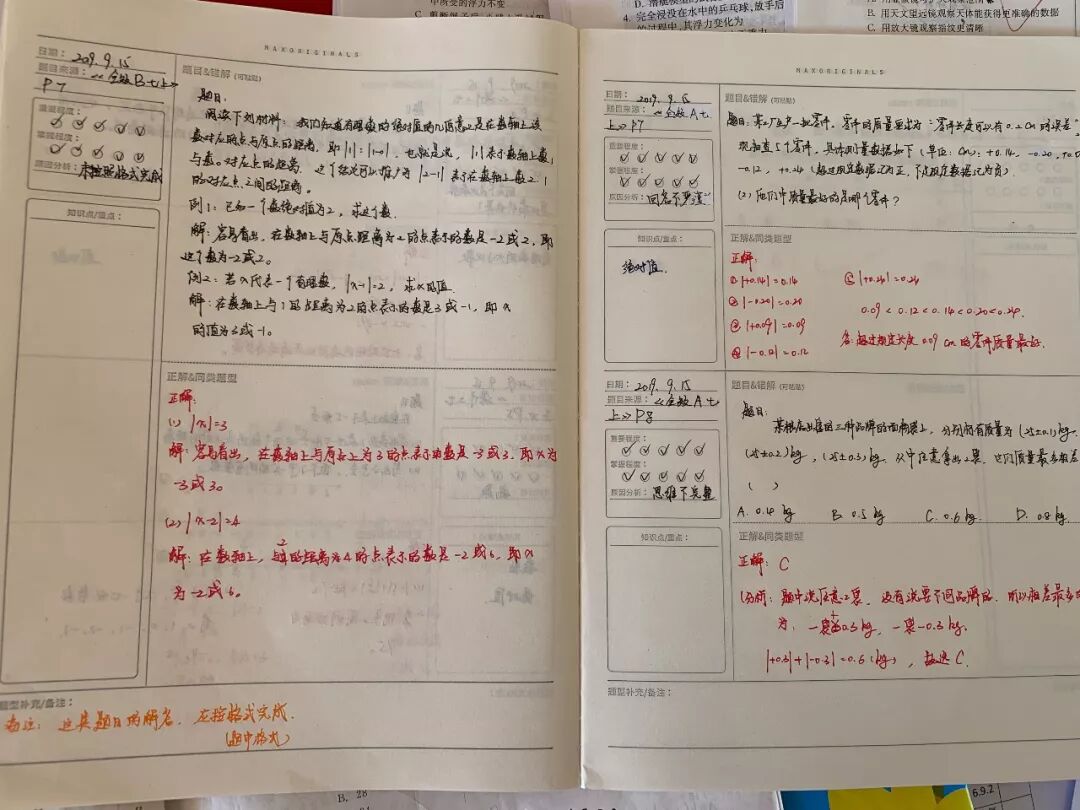 D. 潜艇
中所受的浮力不变
4. 完全浸没在水中的乒乓球，放手后
的过程中，其浮力变化为
B. 用天文望远镜观察天体能获得更准确的数据
C. 用放大镜观察指纹更清晰
MAXORIGINALS
日期： 2019.9.15
题目来源：《全效B七上》
P7
重要程度：
掌握程度：
原因分析： 未按照格式完成
知识点/重点：
题目&错解（可粘贴）
题目：
阅读下列材料：我们知道有理数的绝对值的几何意义是在数轴上该
数对应的点与原点的距离，即|1|=|1-0|，也就是说，|1|表示在数轴上数1
与数0对应点的距离，这个结论可以推广为|2-1|表示在数轴上数2，1
的对应点之间的距离。
例1：已知一个数绝对值为2，求这个数.
解：容易看出，在数轴上与原点距离为2的点表示的数是-2或2，即
这个数为-2或2。
例2：若x代表一个有理数，|x-1|=2，求x的值
解：在数轴上与1的距离为2的点表示的数是3或-1，即x
的值为3或-1。
正解&同类题型
正解：
(1) |x|=3
解：容易看出，在数轴上与原点上为3的点表示的数是-3或3，即x为
-3或3。
(2) |x-2|=4
解：在数轴上，与2的距离为4的点表示的数是-2或6，即x
为-2或6。
题型补充/备注：
备注：这类题目的解答，应按格式完成.
（题中格式）
MAXORIGINALS
日期： 2019.9.15
题目来源：《全效A七
上》P7
重要程度：
掌握程度：
原因分析： 回答不严谨
知识点/重点：
绝对值.
题目&错解（可粘贴）
题目：某工厂生产一批零件，零件的质量要求为"零件长度可以有0.2cm的误差"
现抽查5个零件，具体测量数据如下（单位：cm）：+0.14，-0.20，+0.0
-0.12，+0.24（超过规定数据记为正，下足规定数据记为负）.
(2) 他们中质量最好的是哪个零件？
正解&同类题型
正解：
① |+0.14|=0.14 ⑤ |+0.24|=0.24
② |-0.20|=0.20 0.09<0.12<0.14<0.20<0.24.
③ |+0.09|=0.09
④ |-0.12|=0.12 答：超过规定长度0.09cm的零件质量最好.
日期： 2019.9.15
题目来源：《全效A七
上》P8
重要程度：
掌握程度：
原因分析： 思维不完整
知识点/重点：
题目&错解（可粘贴）
题目：
某粮店出售的三种品牌的面粉袋上，分别标有质量为(25±0.1)kg，
(25±0.2)kg，(25±0.3)kg，从中任意拿出2袋，它们质量最多相差
（ ）
A. 0.4kg B. 0.5kg C. 0.6kg. D. 0.8kg
正解&同类题型
正解：C
分析：题中说任意2袋，没有说要不同品牌的，所以相差最多的
为，一袋+0.3kg，一袋-0.3kg.
|+0.3|+|-0.3|=0.6(kg)，故选C.
题型补充/备注：
B. 28
6.9.2